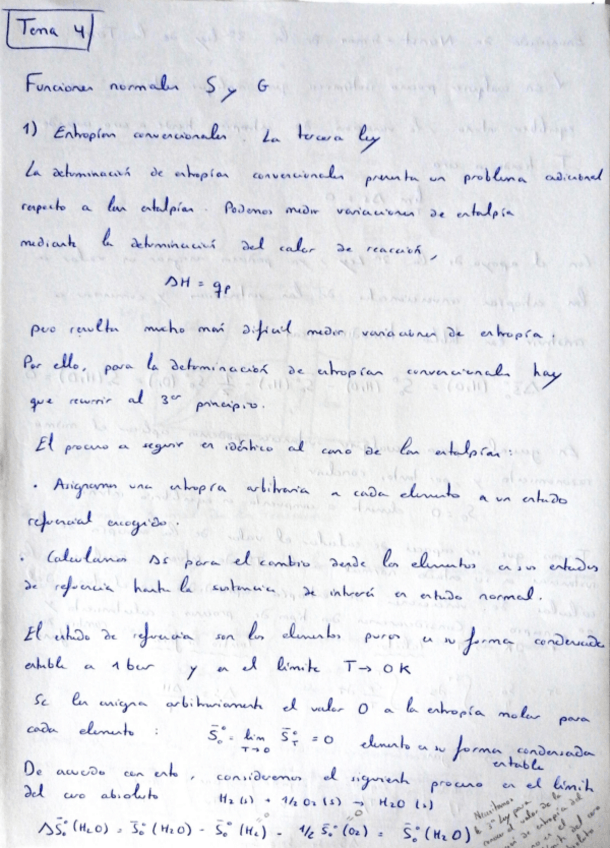 Tema 4
Funciones normales S y G
1) Entropías convencionales. La tercera ley
La determinación de entropías convencionales presenta un problema adicional
respecto a las entalpías. Podemos medir variaciones de entalpía
mediante la determinación del calor de reacción,
ΔH = qp
pero resulta mucho más difícil medir variaciones de entropía.
Por ello, para la determinación de entropías convencionales hay
que recurrir al 3er principio.
El proceso a seguir es idéntico al caso de las entalpías:
· Asignamos una entropía arbitraria a cada elemento a un estado
referencial escogido.
· Calculamos ΔS para el cambio desde los elementos en sus estados
de referencia hasta la sustancia de interés en estado normal.
El estado de referencia son los elementos puros en su forma condensada
estable a 1 bar y en el límite T → 0 K
Se les asigna arbitrariamente el valor 0 a la entropía molar para
cada elemento: S̄₀° = lim T→0 S̄°T = 0 elemento en su forma condensada
estable
De acuerdo con esto, consideremos el siguiente proceso en el límite
del cero absoluto H₂(s) + 1/2 O₂(s) → H₂O(s)
ΔS̄₀°(H₂O) = S̄₀°(H₂O) - S̄₀°(H₂) - 1/2 S̄₀°(O₂) = S̄₀°(H₂O)
=0 =0
Necesitamos
la 3ª ley para
conocer el valor de la
de entropía del
en el
del cero
absoluto